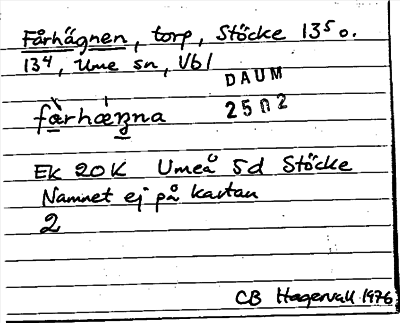 Fårhägnen, torp, Stöcke 13⁵ o.
13⁴, Ume sn, Vbl
DAUM
2502
fàrhæŋna
Ek 20K Umeå 5d Stöcke
Namnet ej på kartan
2
CB Hagervall 1976